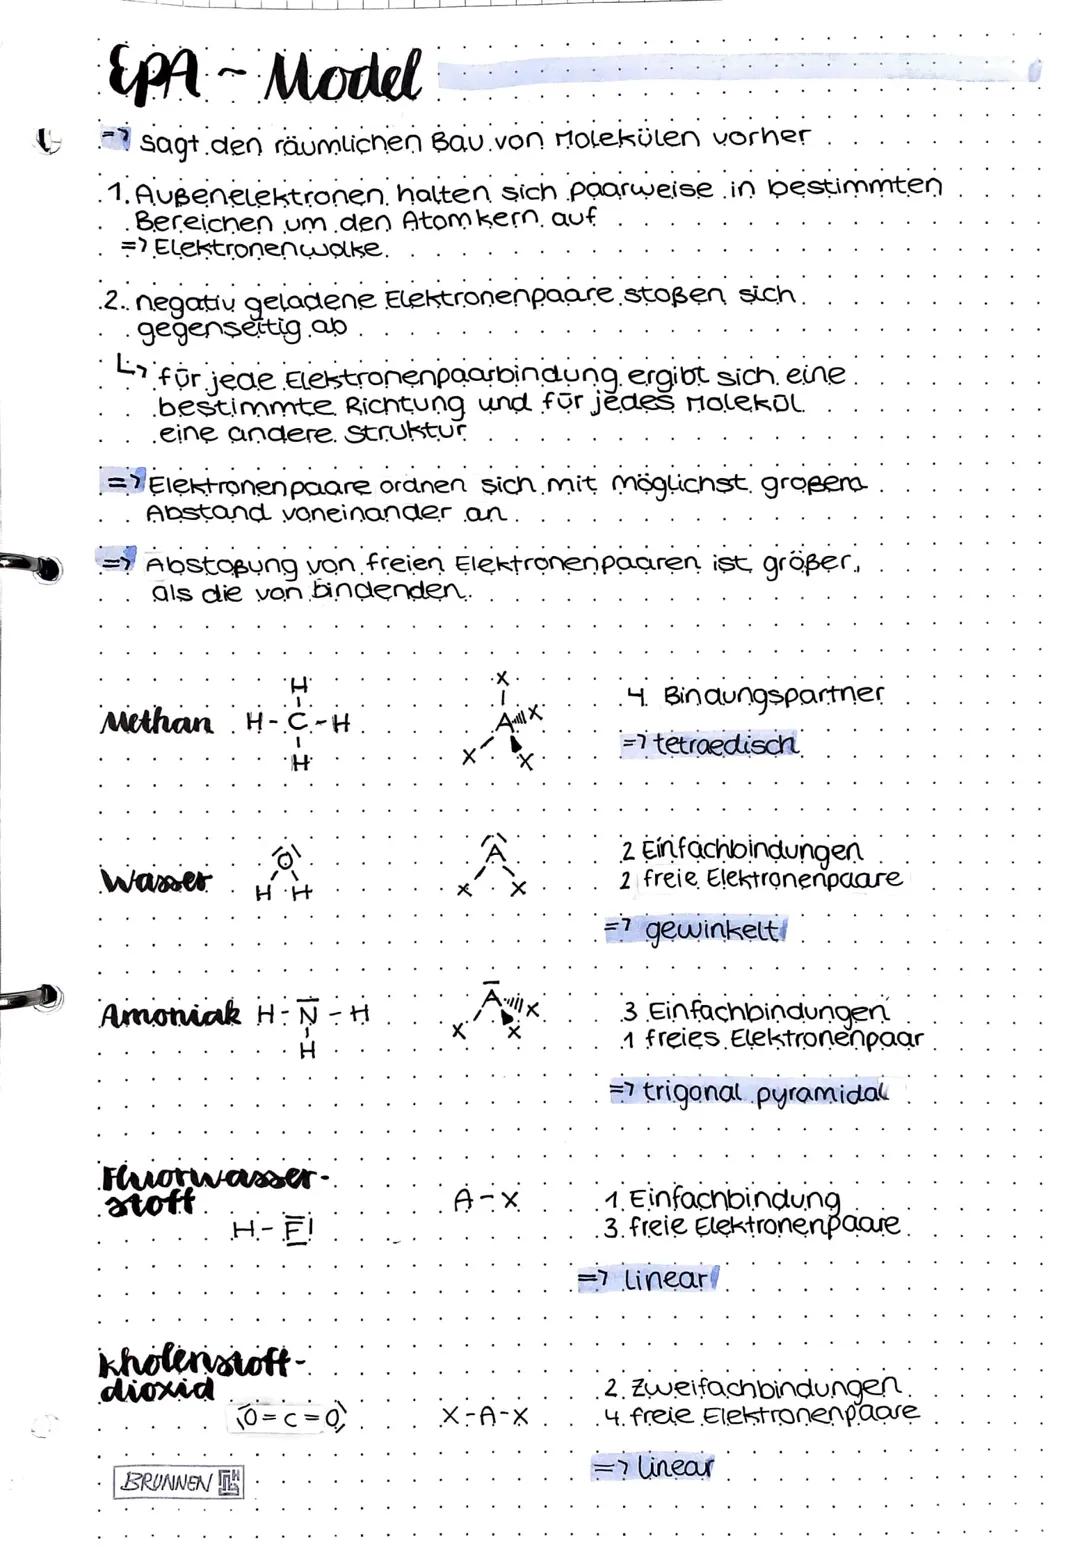 EPA ~ Model
=> sagt den räumlichen Bau von Molekülen vorher
1. Außenelektronen halten sich paarweise in bestimmten
Bereichen um den Atomkern auf
=> Elektronenwolke
2. negativ geladene Elektronenpaare stoßen sich
gegenseitig ab
↳ für jede Elektronenpaarbindung ergibt sich eine
bestimmte Richtung und für jedes Molekül
eine andere Struktur
=> Elektronenpaare ordnen sich mit möglichst großem
Abstand voneinander an
=> Abstoßung von freien Elektronenpaaren ist größer,
als die von bindenden.
H
X
4 Bindungspartner
Methan H-C-H
A X
=> tetraedisch
H
X X
Wasser
O
A
2 Einfachbindungen
H H
X X
2 freie Elektronenpaare
=> gewinkelt
Amoniak H-N-H
A X
3 Einfachbindungen
H
X X
1 freies Elektronenpaar
=> trigonal pyramidal
Fluorwasser-
stoff
H-F
A-X
1 Einfachbindung
3 freie Elektronenpaare
=> linear
kholenstoff-
dioxid
O=C=O
X-A-X
2 Zweifachbindungen
4 freie Elektronenpaare
=> linear
BRUNNEN